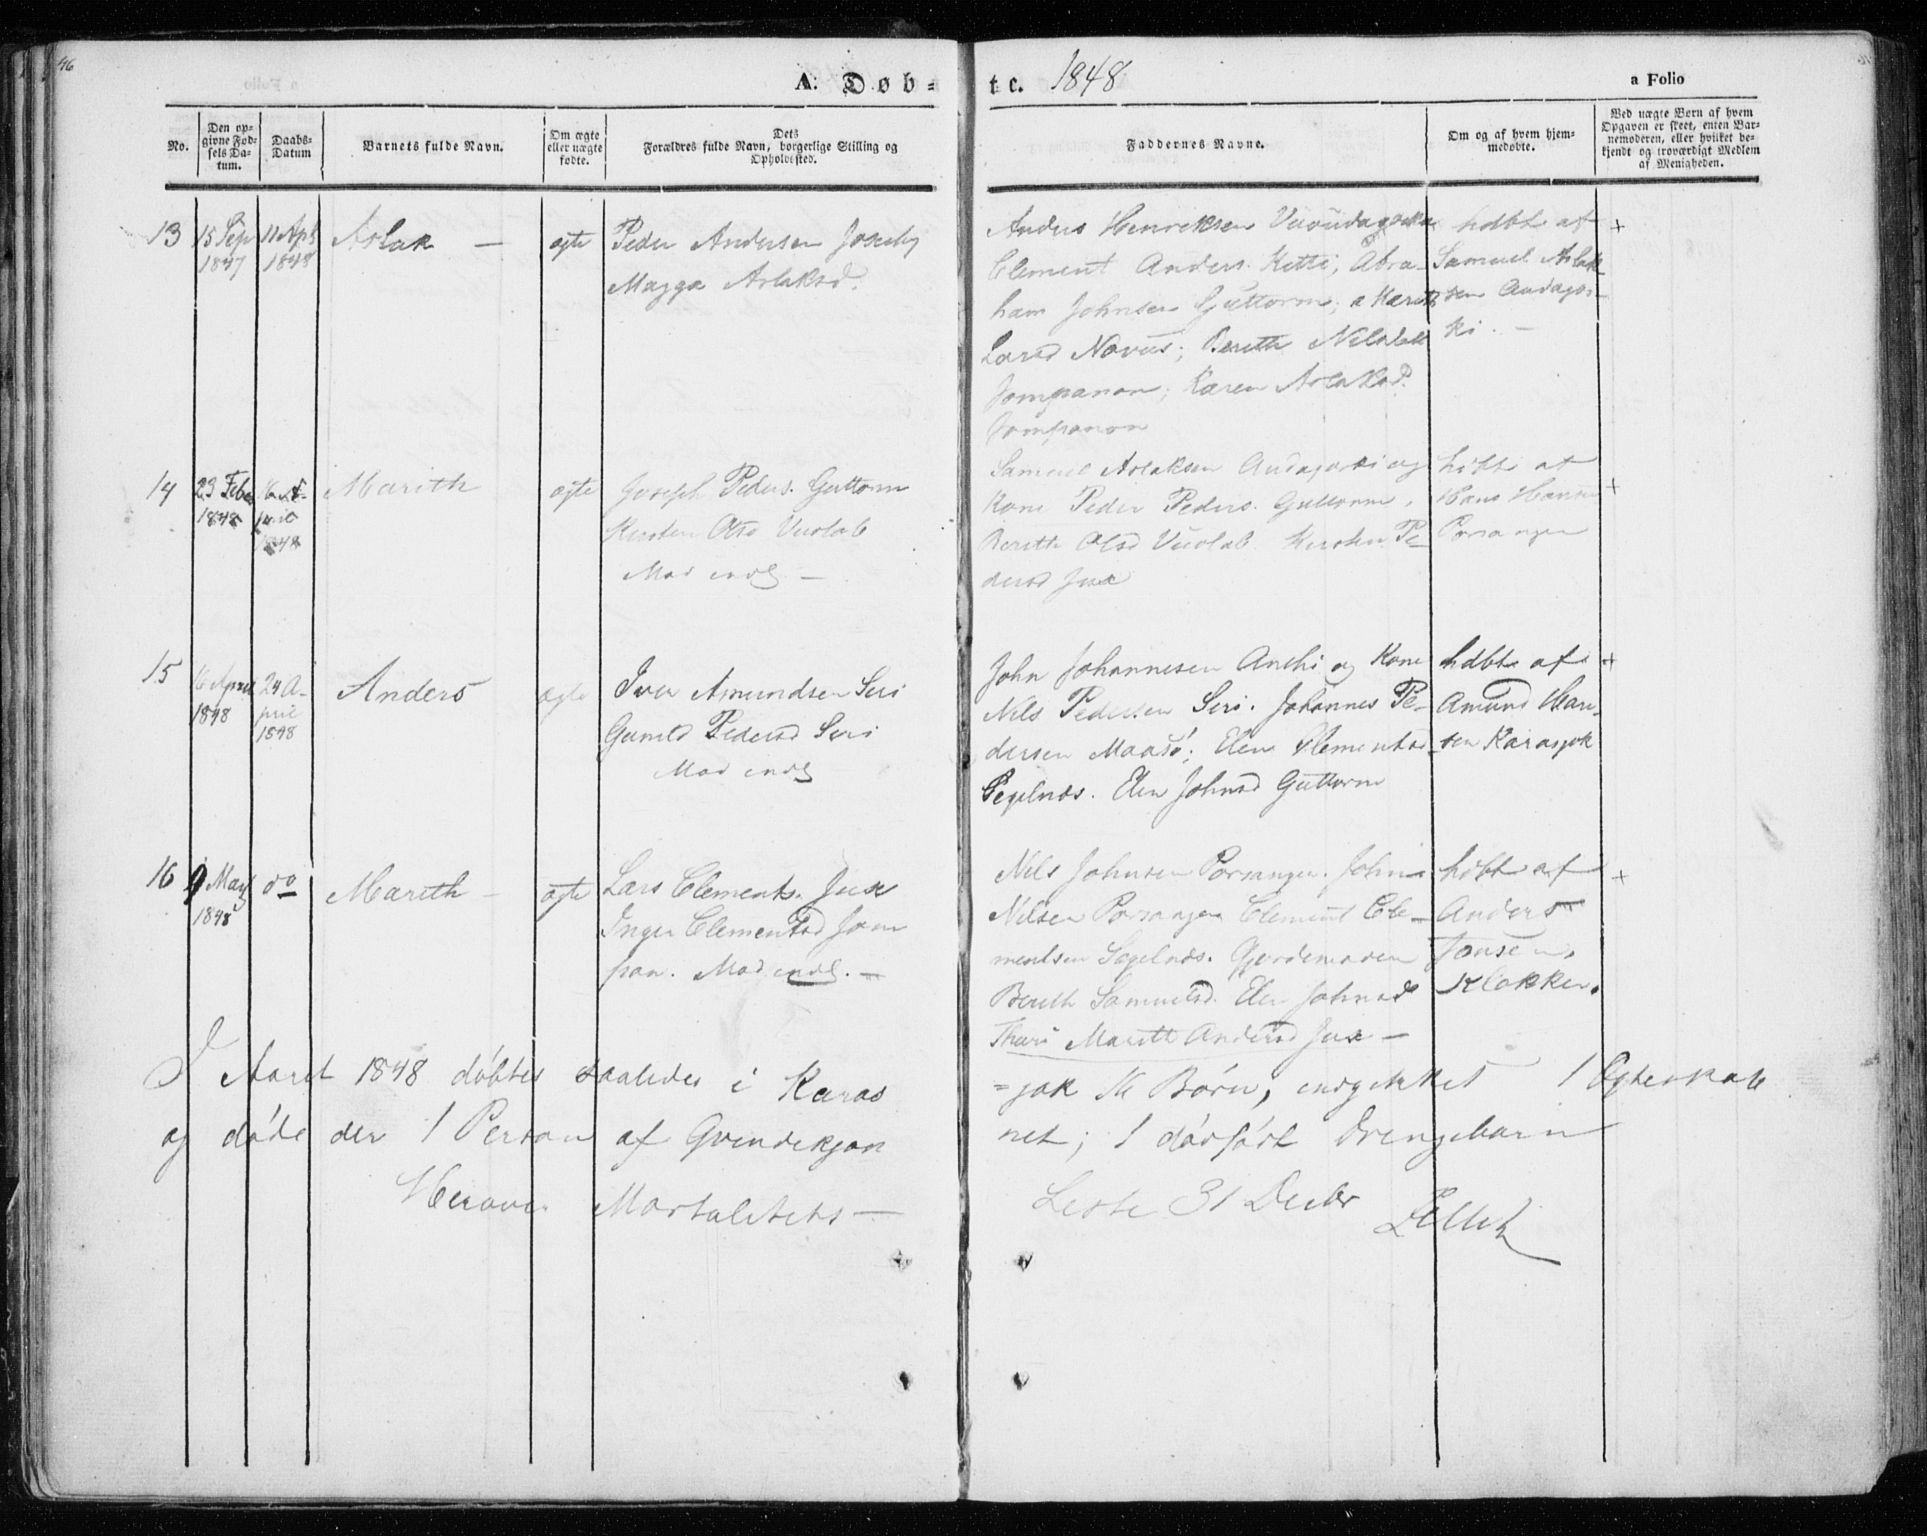 46
A. Døb-
te. 1848
a Folio
No.
Den op-
givne Fød-
sels Da-
tum.
Daabs-
Datum
Barnets fulde Navn.
Om ægte
eller uægte
fødte.
Dets
Forældres fulde Navn, borgerlige Stilling og
Opholdssted.
Faddernes Navne.
Om og af hvem hjem-
medøbte.
Ved uægte Børn af hvem
Opgaven er skeet, enten Bar-
nemoderen, eller hvilket be-
kjendt og troværdigt Medlem
af Menigheden.
13
15 Sep
1847
11 Apr
1848
Aslak —
ægte
Peder Andersen
Magga Aslaksd.
Anders Henriksen
Clement Anders. Kitti, Abra-
ham Johnsen Guttorm,
Larsd Navus; Berith
Jompanon; Karen Aslaksd.
Jompanon
hdbt af
Samuel Aslak-
sen Audagos-
ki. —
+
14
23 Feb
1848
16 A-
pril
1848
Marith
ægte
Joseph Peders. Guttorm
Kirsten Olsd Vuolab
Mad indl —
Samuel Aslaksen Audagoski og
Kone Peder Peders. Guttorm,
Berith Olsd Vuolab Kirsten Pe-
dersd Jux
hdbt af
Hans
Porsanger
+
15
16 April
1848
24 A-
pril
1848
Anders
ægte
Iver Amundsen Siri
Gunild Pedersd Siri
Mad indl
John Johannesen Anthi og Kone
Nils Pedersen Siri. Johannes Pe-
dersen Maasø; Elen Clementsd
Segelnæs. Elen Johnsd Guttorm
hdbt af
Amund Han-
sen Karasjok
+
16
9 May
1848
do
Marith —
ægte
Lars Clements. Jux
Inger Clementsd Jom
pan. Mad indl. —
Nils Johnsen Porsanger. John
Nilsen Porsanger Clement Cle-
mentsen Segelnæs. Gjordemoder
Berith Samuelsd. Elen Johnsd
Thuri Marith Andersd Jux —
hdbt af
Anders
Jonsen,
Klokker.
+
I Aaret 1848 døbtes saaledes i Karas
=jok 16 Børn, indgikket 1 Ægteskab
og døde der 1 Person af Qvindekjøn
net; 1 dødfødt Drengebarn
Herover Mortalitets —
Liste 31 Decbr